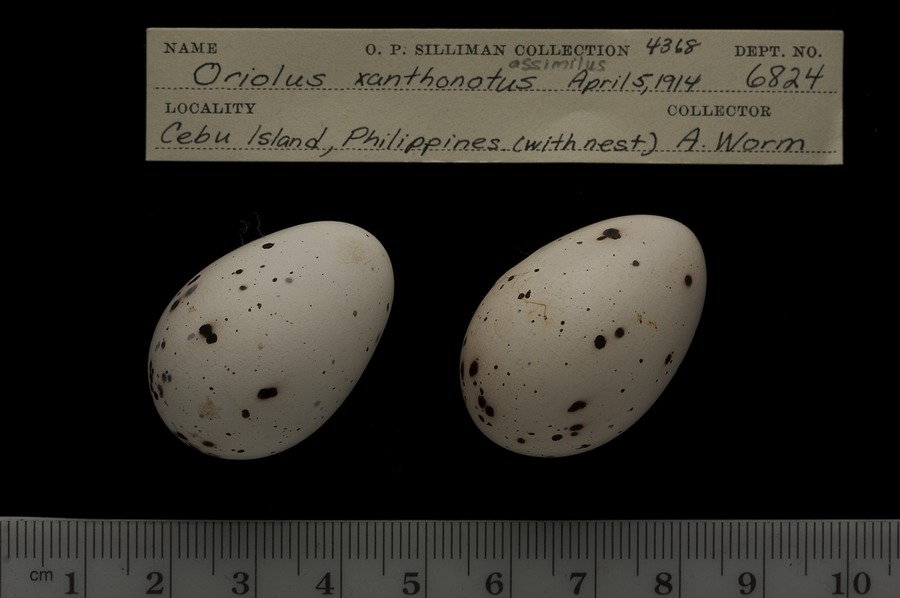 NAME O. P. SILLIMAN COLLECTION 4368 DEPT. NO.
assimilus
Oriolus xanthonotus April 5, 1914 6824
LOCALITY COLLECTOR
Cebu Island, Philippines (with nest) A. Worm
cm 1 2 3 4 5 6 7 8 9 10